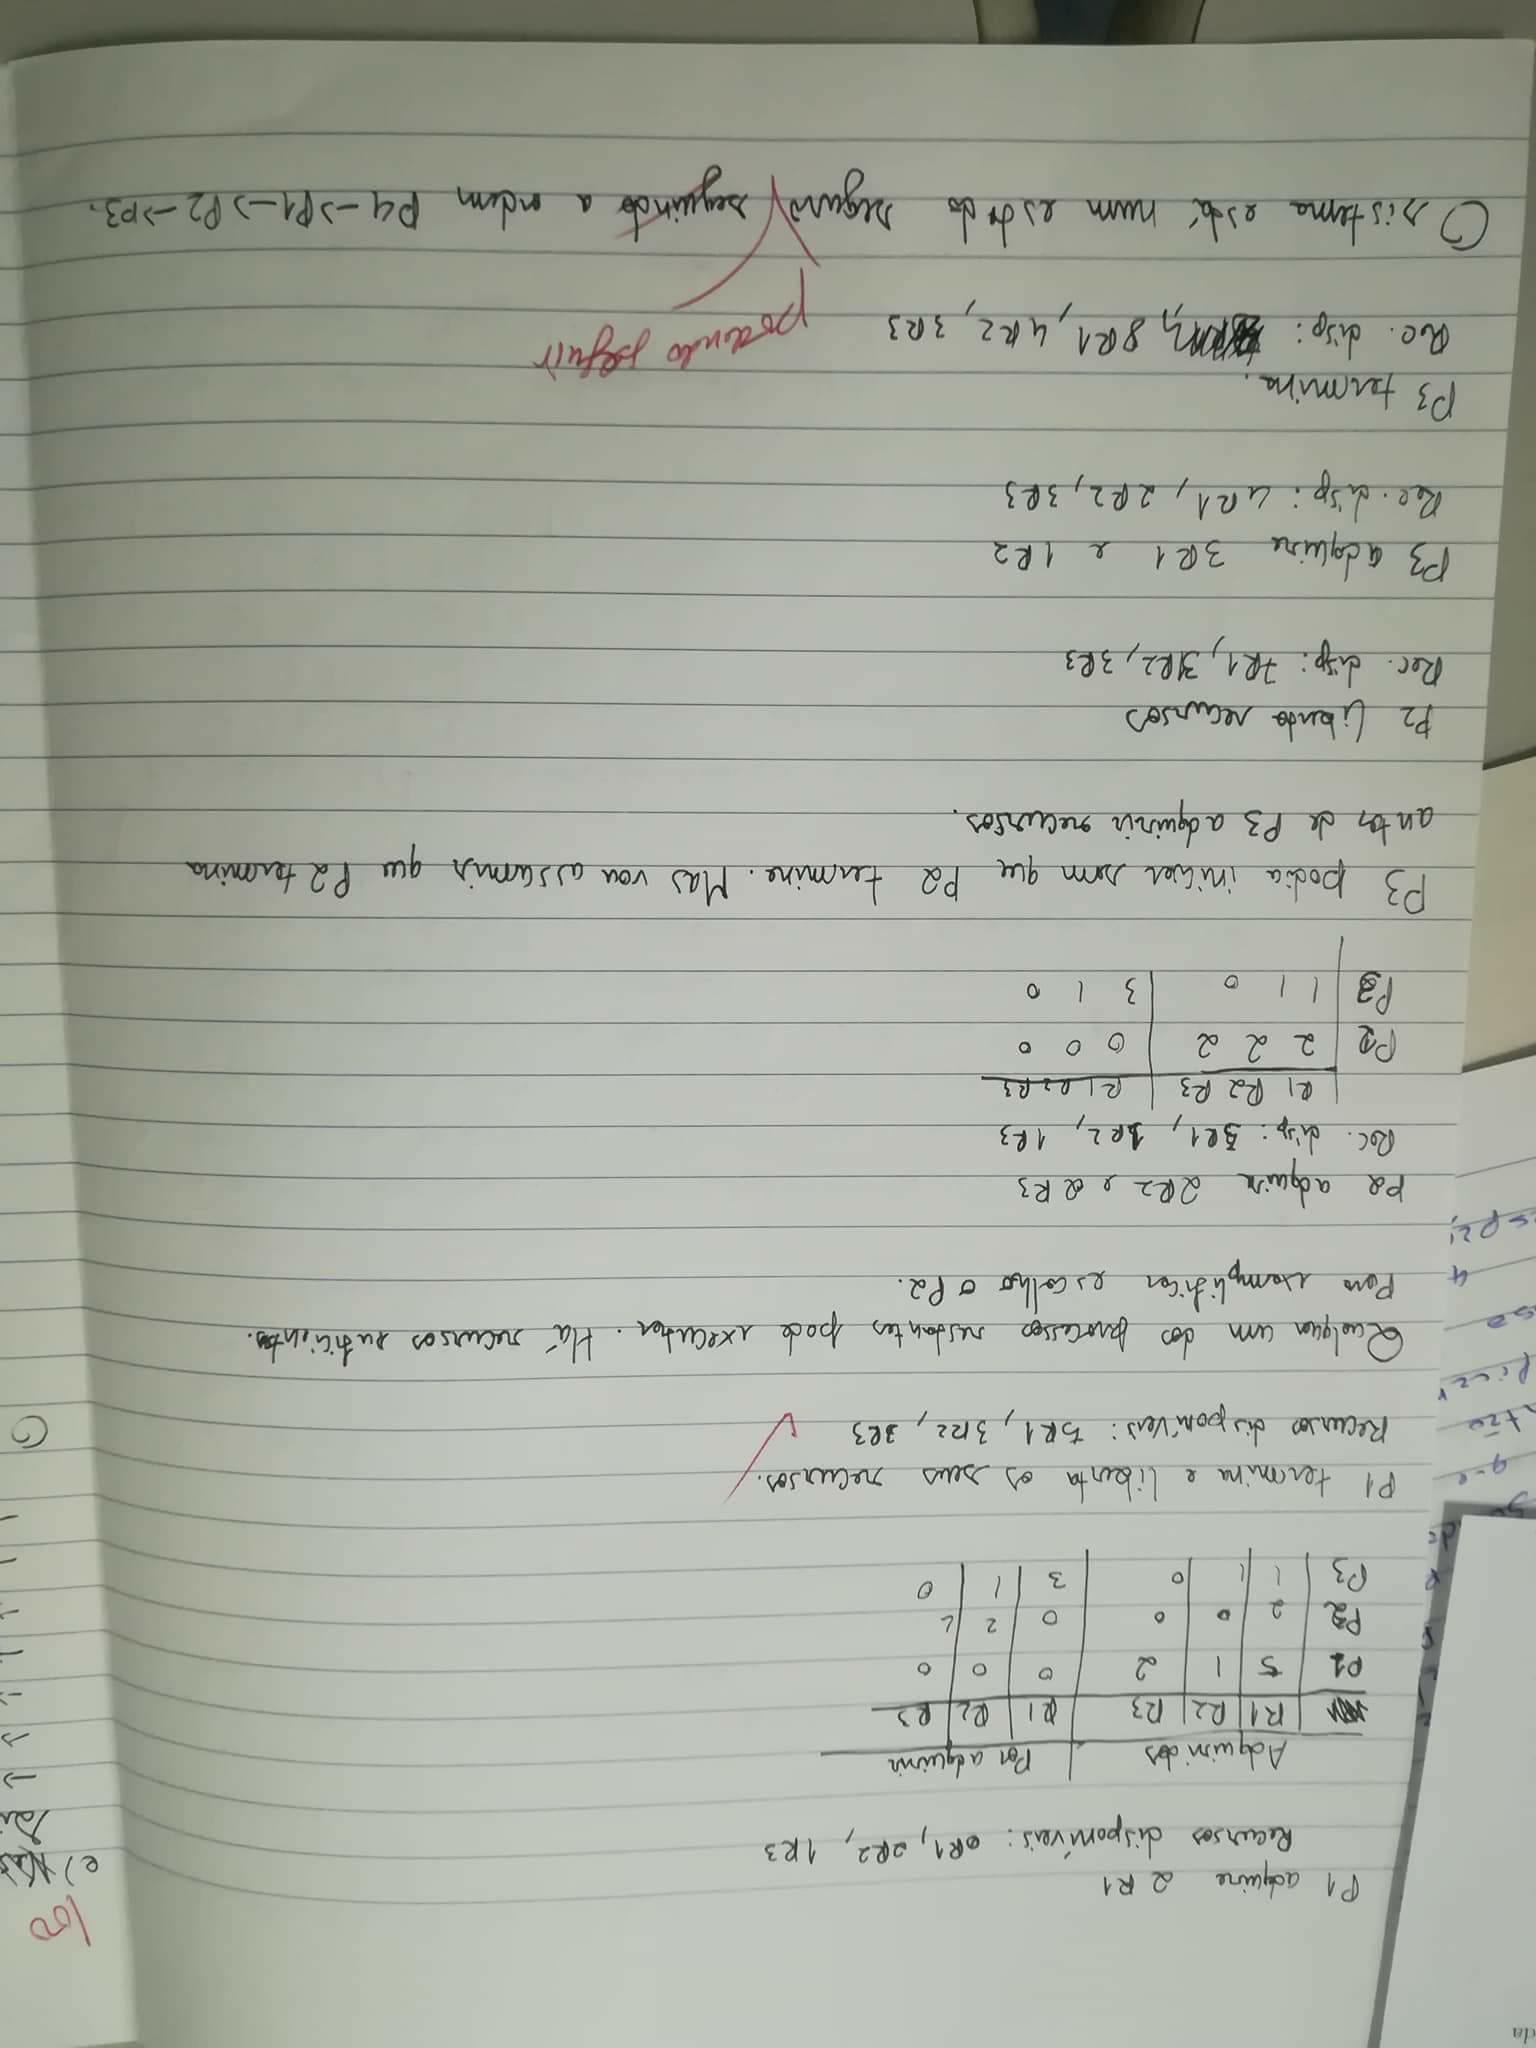 da
P1 adquire 2 R1
Recursos disponíveis: 0R1, 2R2, 1R3
Adquiridos Por adquirir
R1 R2 R3 R1 R2 R3
P1 5 1 2 0 0 0
P2 2 0 0 0 2 2
P3 1 1 0 3 1 0
P1 termina e liberta os seus recursos.
Recursos disponíveis: 5R1, 3R2, 3R3
Qualquer um dos processos restantes pode executar. Há recursos suficientes.
Para exemplificar escolho o P2.
P2 adquire 2R2 e 2R3
Rec. disp: 5R1, 1R2, 1R3
R1 R2 R3 R1 R2 R3
P2 2 2 2 0 0 0
P3 1 1 0 3 1 0
P3 podia iniciar sem que P2 termine. Mas vou assumir que P2 termina
antes de P3 adquirir recursos.
P2 liberta recursos
Rec. disp: 7R1, 3R2, 3R3
P3 adquire 3R1 e 1R2
Rec. disp: 4R1, 2R2, 3R3
P3 termina.
Rec. disp: 8R1, 4R2, 3R3
podendo seguir
O sistema está num estado seguro seguindo a ordem P4 -> P1 -> P2 -> P3.
100
e)
que